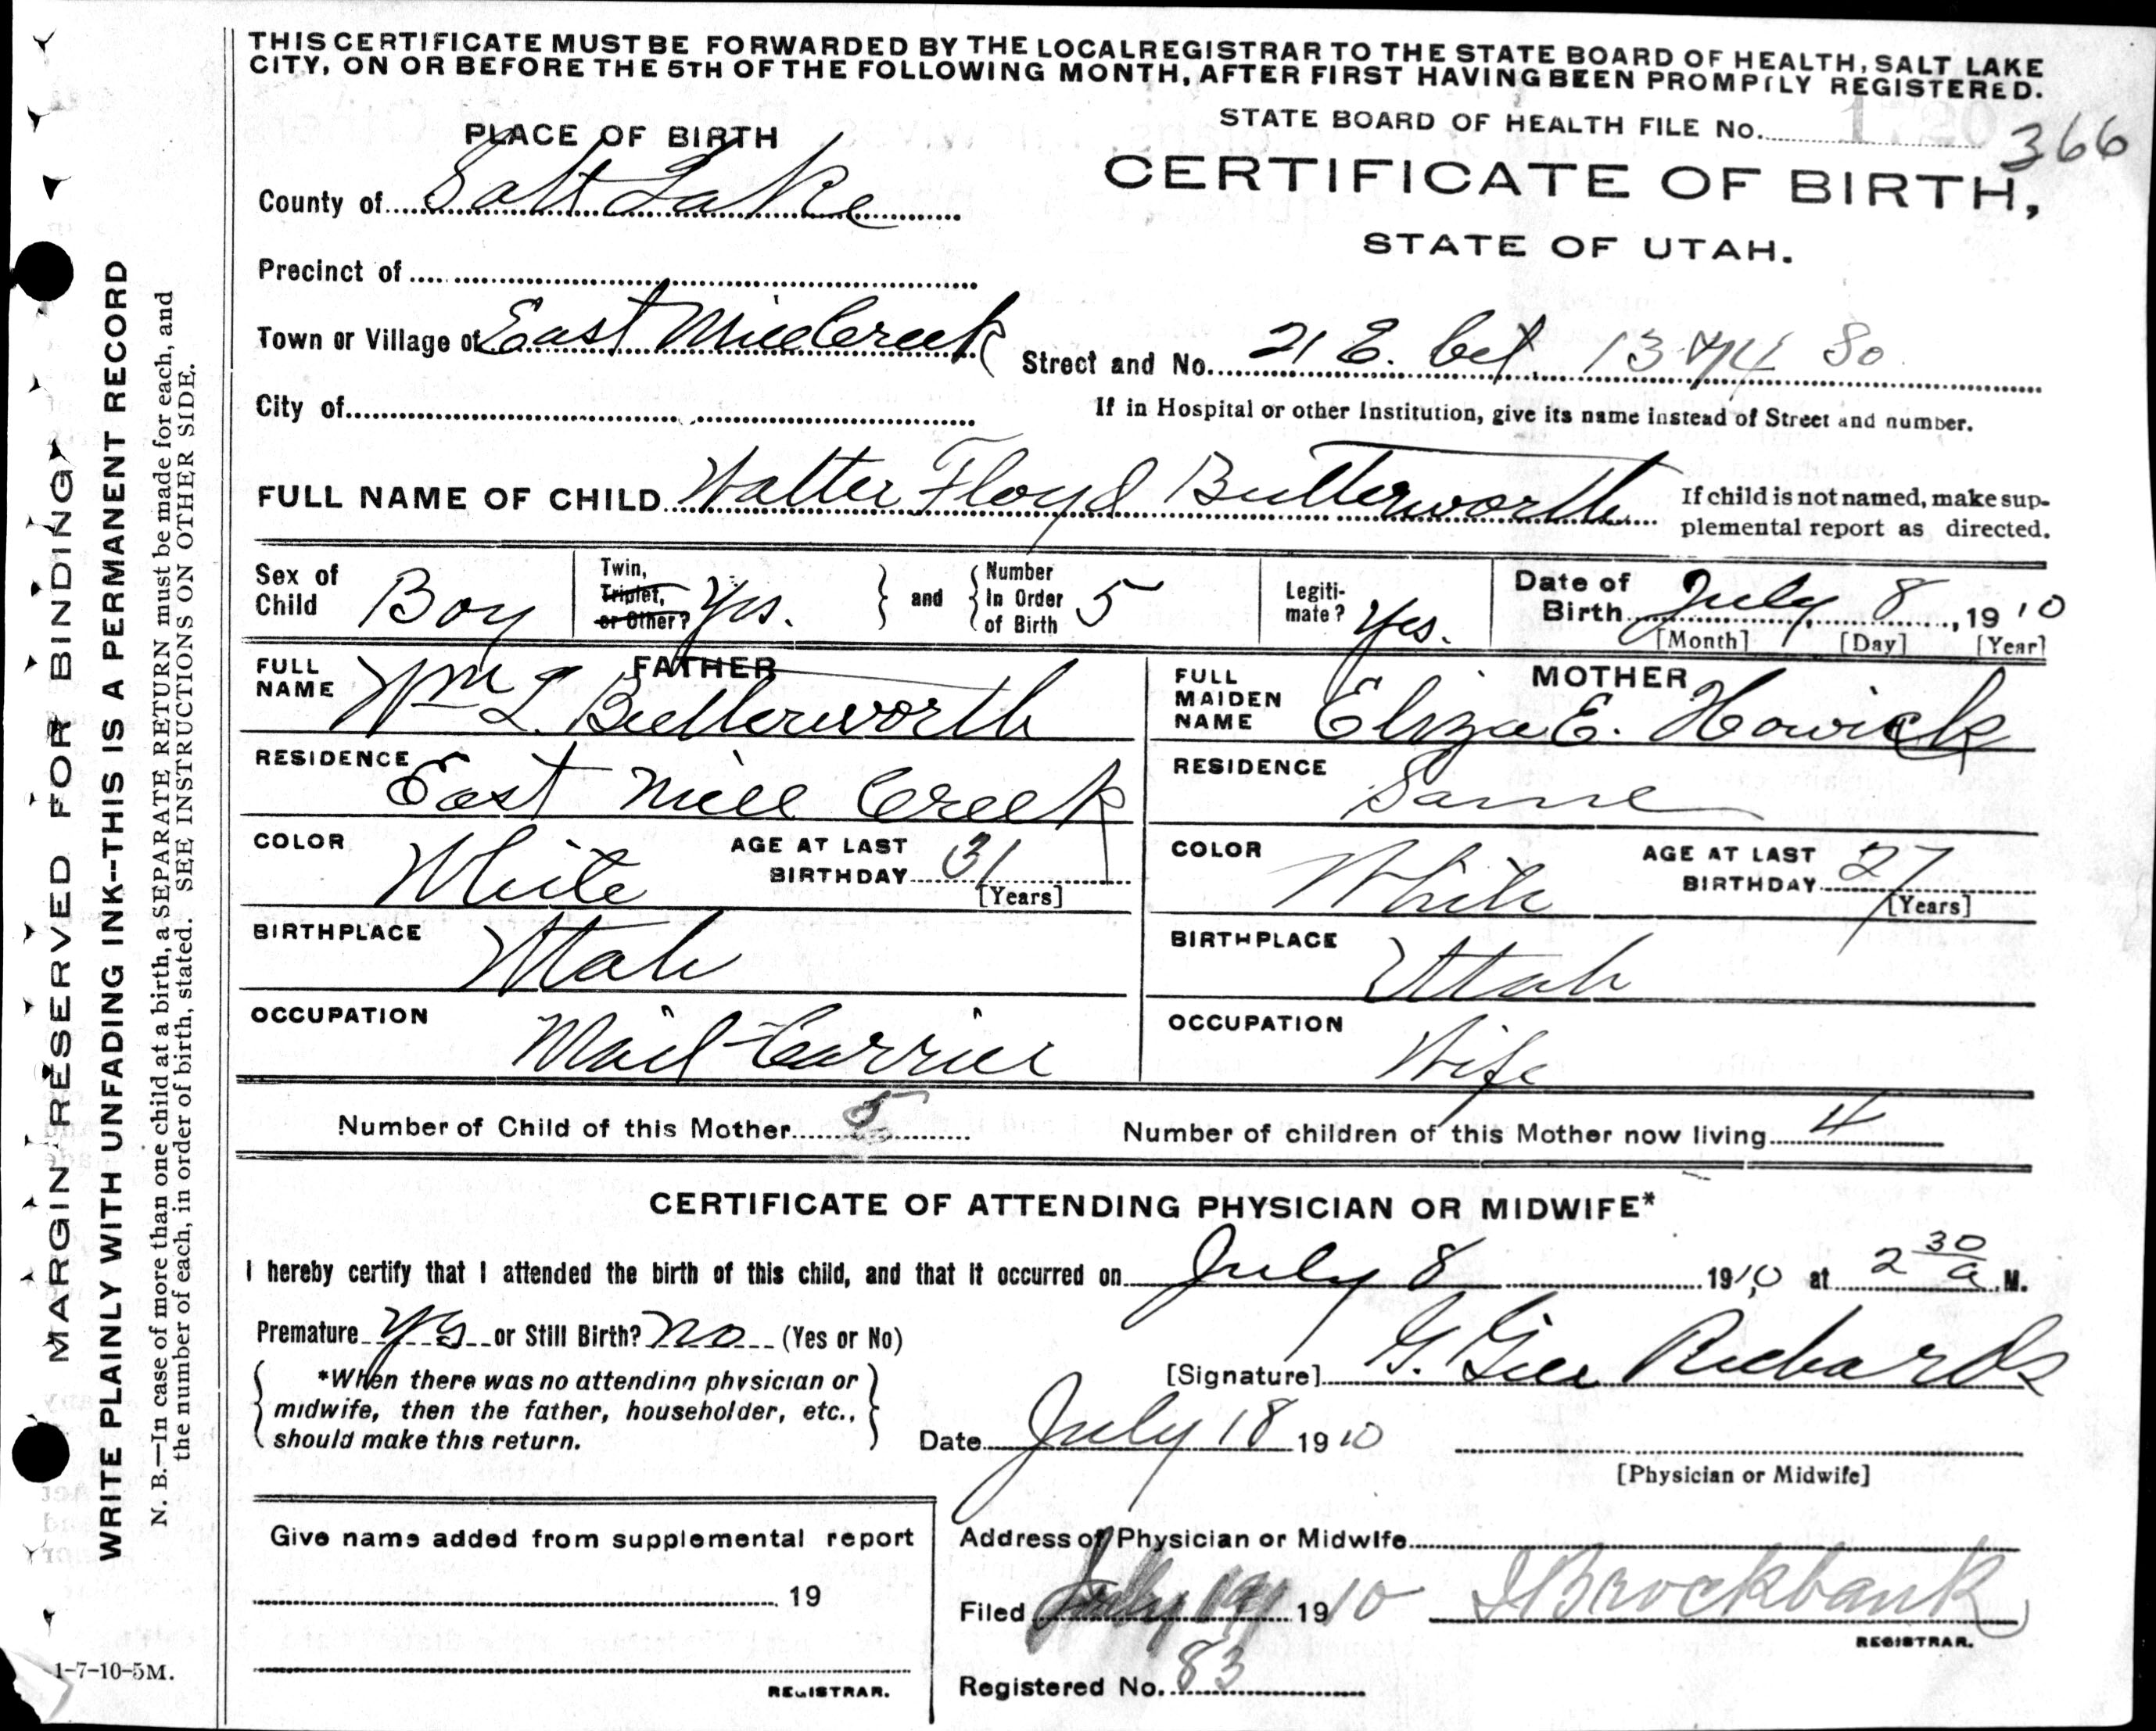 THIS CERTIFICATE MUST BE FORWARDED BY THE LOCAL REGISTRAR TO THE STATE BOARD OF HEALTH, SALT LAKE
CITY, ON OR BEFORE THE 5TH OF THE FOLLOWING MONTH, AFTER FIRST HAVING BEEN PROMPTLY REGISTERED.
PLACE OF BIRTH
STATE BOARD OF HEALTH FILE No. 366
County of Salt Lake
CERTIFICATE OF BIRTH,
STATE OF UTAH.
Precinct of
Town or Village of East Mill Creek
Street and No. 21 E. bet 13 & 14 So
City of
If in Hospital or other Institution, give its name instead of Street and number.
FULL NAME OF CHILD Walter Floyd Butterworth
If child is not named, make sup-
plemental report as directed.
Sex of Child Boy
Twin, Triplet, or Other? Yes.
and
Number In Order of Birth 5
Legiti-mate? Yes.
Date of Birth July 8, 1910
[Month] [Day] [Year]
FATHER
FULL NAME Wm L Butterworth
MOTHER
FULL MAIDEN NAME Eliza E. Howick
RESIDENCE East Mill Creek
RESIDENCE Same
COLOR White
AGE AT LAST BIRTHDAY 31 [Years]
COLOR White
AGE AT LAST BIRTHDAY 27 [Years]
BIRTHPLACE Utah
BIRTHPLACE Utah
OCCUPATION Mail Carrier
OCCUPATION Wife
Number of Child of this Mother 5
Number of children of this Mother now living 4
CERTIFICATE OF ATTENDING PHYSICIAN OR MIDWIFE*
I hereby certify that I attended the birth of this child, and that it occurred on July 8 1910, at 2 30 a. M.
Premature Yes or Still Birth? No (Yes or No)
[Signature] G. Gill Richards
*When there was no attending physician or
midwife, then the father, householder, etc.,
should make this return.
Date July 18 1910
[Physician or Midwife]
Give name added from supplemental report
19
REGISTRAR.
Address of Physician or Midwife
Filed July 1910 Brockbank
REGISTRAR.
Registered No. 83
1-7-10-5M.
MARGIN RESERVED FOR BINDING
WRITE PLAINLY WITH UNFADING INK--THIS IS A PERMANENT RECORD
N. B.—In case of more than one child at a birth, a SEPARATE RETURN must be made for each, and
the number of each, in order of birth, stated. SEE INSTRUCTIONS ON OTHER SIDE.